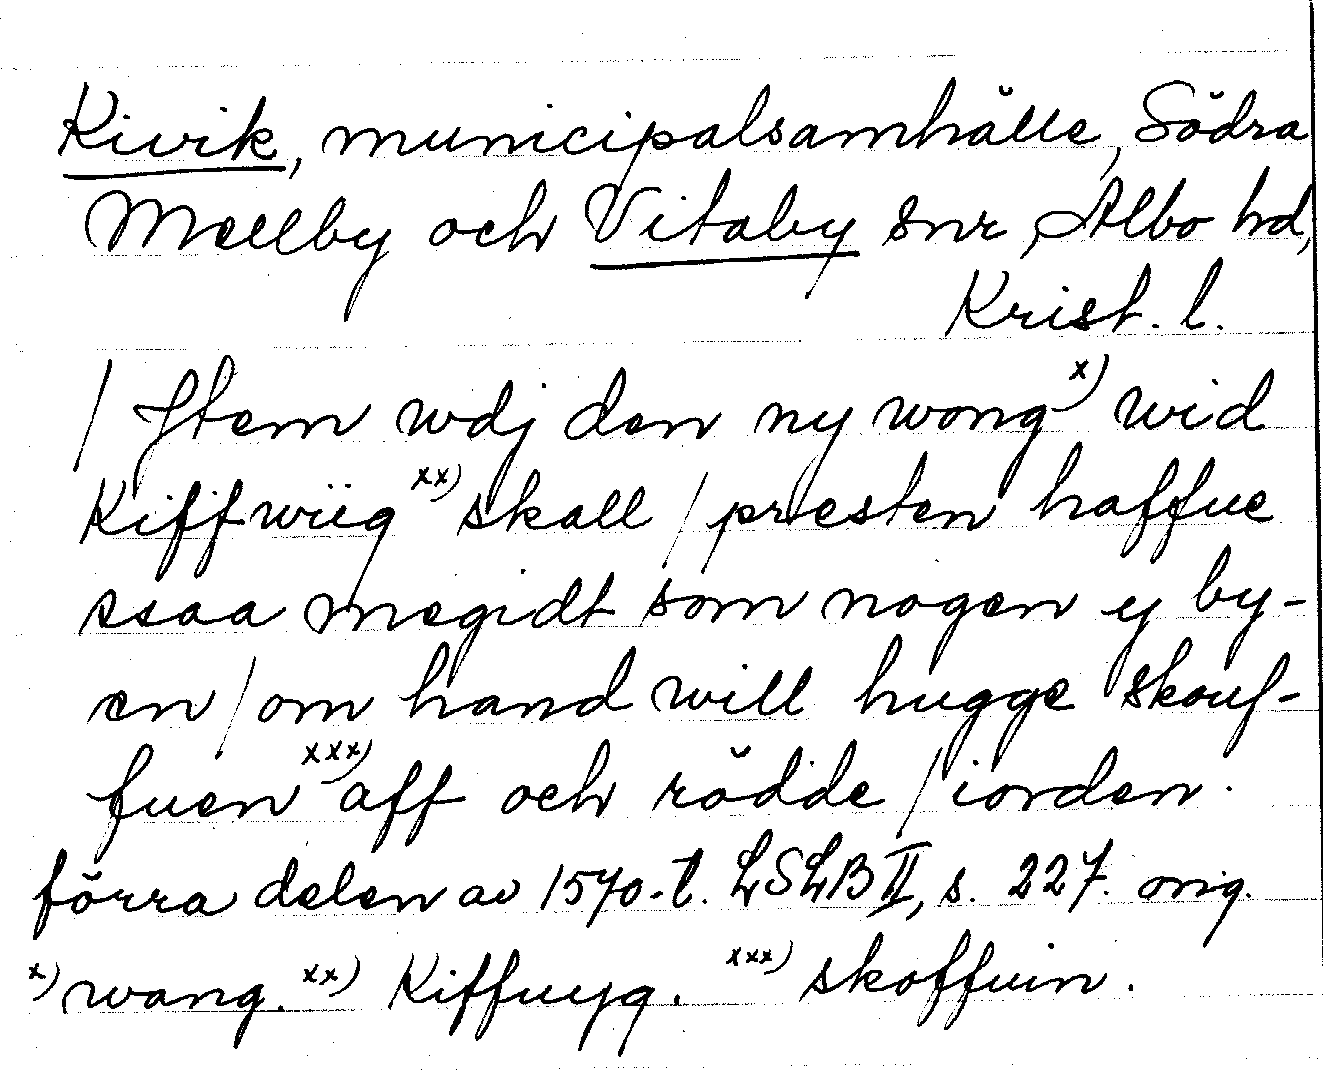 Kivik, municipalsamhälle, Södra
Mellby och Vitaby snr, Albo hd,
Krist. l.
/ Jtem wdj den ny wong x) wid
Kiffwiig xx) skall / presten haffue
ssaa megidt som nogen y by-
en / om hand will hugge skouf-
fuen xxx) aff och rödde / iorden.
förra delen av 1570-t. LSLB II, s. 227. orig.
x) wang. xx) Kiffuyg. xxx) skoffuin.